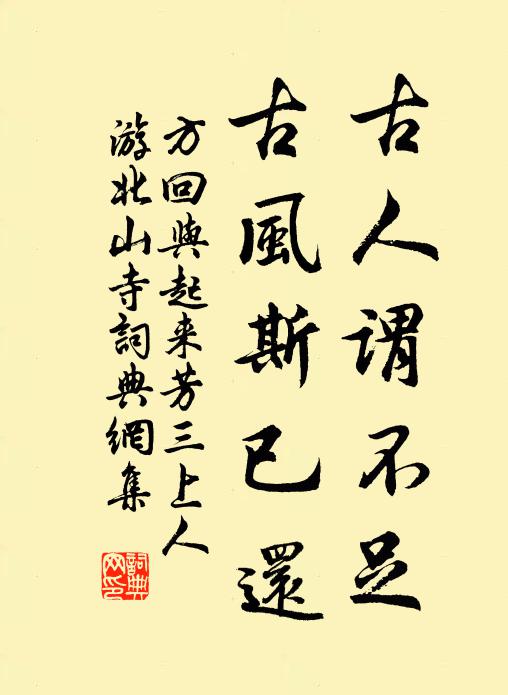 古人谓不足
古風斯已還
方回與起来芳三上人
游北山寺詞典網集
詞典
网印